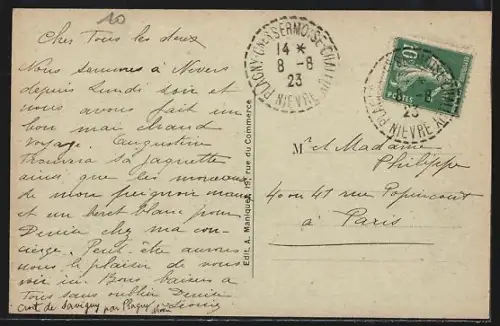 10
Chers Tous les deux
Nous sommes à Nevers
depuis Lundi soir et
nous avons fait un
bon mai chaud
voyage. Augustine
trouvera sa jaquette
ainsi que les morceaux
de mon peignoir mauve
et un beret blanc pour
Denise chez ma con-
cierge. Peut-être aurons
nous le plaisir de vous
voir ici. Bons baisers à
Tous sans oublier Denise
Crot de Savigny par Plagny
Edit. A. Maniquet, 19, rue du Commerce
PLAGNY-CHEVENON
14 *
8 -8
23
NIEVRE
10
POSTES
-8
23
NIEVRE
Mr et Madame
Philippe
40 ou 41 rue Popincourt
à Paris